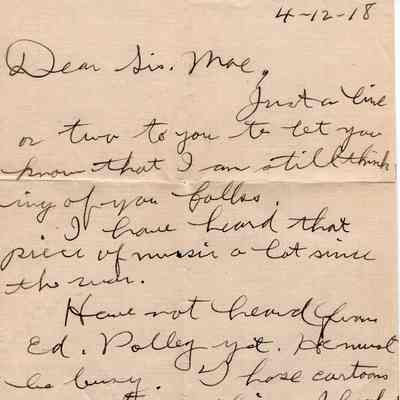 4-12-18
Dear Sis. Mae,
Just a line
or two to you to let you
know that I am still think-
ing of you folks.
I have heard that
piece of music a lot since
the war.
Have not heard from
Ed. Polley yet. He must
be busy. Those cartoons